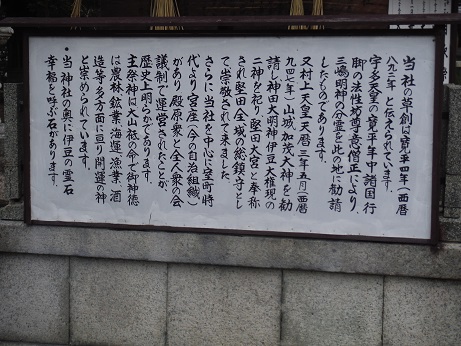 当社の草創は寛平四年(西暦
八九二年)と伝えられています。
宇多天皇の寛平年中諸国行
脚の法性坊尊意僧正により、
三嶋明神の分霊を此の地に勧請
したものであります。
又村上天皇天暦二年五月(西暦
九四七年)山城加茂大神を勧
請し神田大明神伊豆大権現の
二神を祀り、堅田大宮と奉称
され堅田全域の総鎮守とし
て崇敬されて来ました。
さらに、当社を中心に室町時
代より宮座(今の自治組織)
があり殿原衆と全人衆の会
議制で運営されたことが、
歴史上明らかであります。
主祭神は大山祇の命で御神徳
は農林、鉱業、海運、漁業、酒
造等、多方面に亘り開運の神
と崇められています。
・当神社の奥に伊豆の霊石
幸福を呼ぶ石があります。